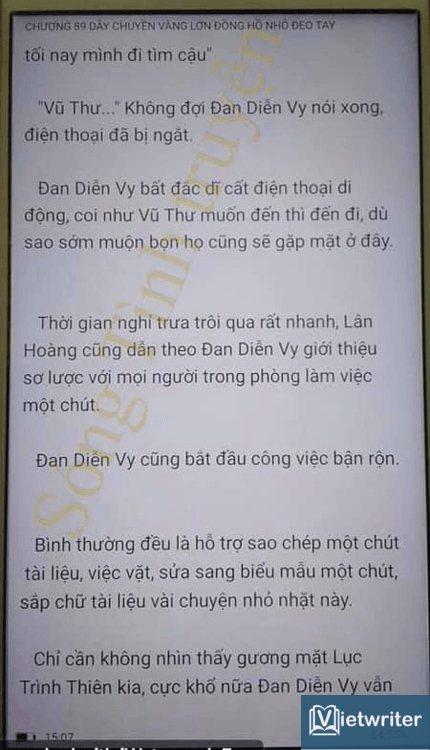 CHƯƠNG 89 DÂY CHUYỀN VÀNG LỚN ĐỒNG HỒ NHỎ ĐEO TAY
tối nay mình đi tìm cậu"
"Vũ Thư..." Không đợi Đan Diễn Vy nói xong,
điện thoại đã bị ngắt.
Đan Diễn Vy bất đắc dĩ cất điện thoại di
động, coi như Vũ Thư muốn đến thì đến đi, dù
sao sớm muộn bọn họ cũng sẽ gặp mặt ở đây.
Thời gian nghỉ trưa trôi qua rất nhanh, Lân
Hoàng cũng dẫn theo Đan Diễn Vy giới thiệu
sơ lược với mọi người trong phòng làm việc
một chút.
Đan Diễn Vy cũng bắt đầu công việc bận rộn.
Bình thường đều là hỗ trợ sao chép một chút
tài liệu, việc vặt, sửa sang biểu mẫu một chút,
sắp chữ tài liệu vài chuyện nhỏ nhặt này.
Chỉ cần không nhìn thấy gương mặt Lục
Trình Thiên kia, cực khổ nữa Đan Diễn Vy vẫn
15:07
Vietwriter
Sóng Tình truyện